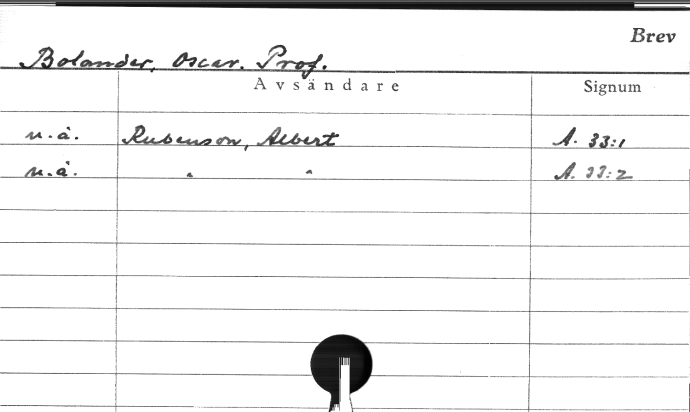 Brev
Bolander, Oscar. Prof.
Avsändare Signum
u.å. Rubenson, Albert A. 33:1
u.å. " " A. 33:2